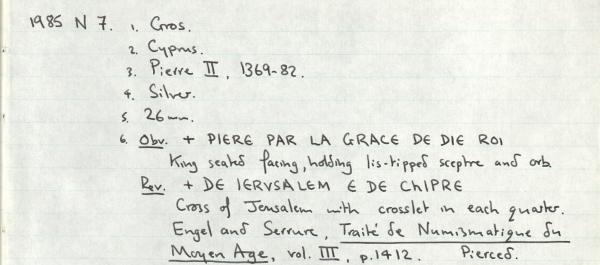 1985 N 7. 1. Gros.
2. Cyprus.
3. Pierre II, 1369-82.
4. Silver.
5. 26mm.
6. Obv. + PIERE PAR LA GRACE DE DIE ROI
King seated facing, holding lis-tipped sceptre and orb
Rev. + DE IERVSALEM E DE CHIPRE
Cross of Jerusalem with crosslet in each quarter.
Engel and Serrure, Traité de Numismatique du
Moyen Age, vol. III, p.1412. Pierced.